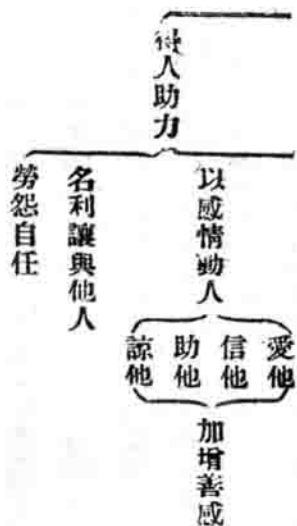 得人助力
以感情動人
愛他
信他
助他
諒他
加增善感
名利讓與他人
勞怨自任